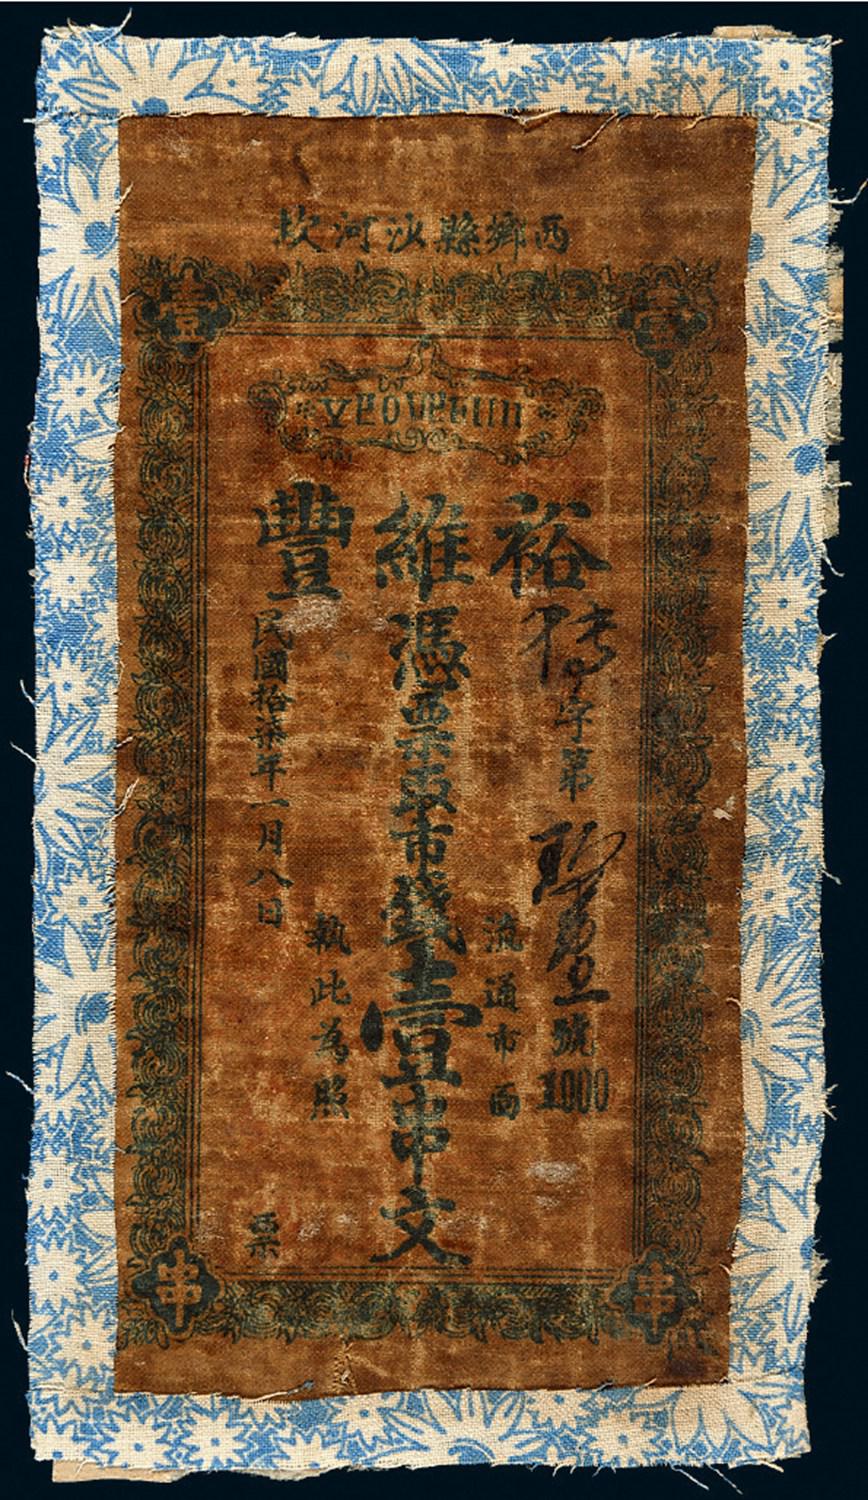 西鄉縣沙河坎
壹
壹
裕維豐
字第
號
1000
流通市面
憑票取市錢壹串文
執此為照
民國拾柒年一月八日
票
串
串